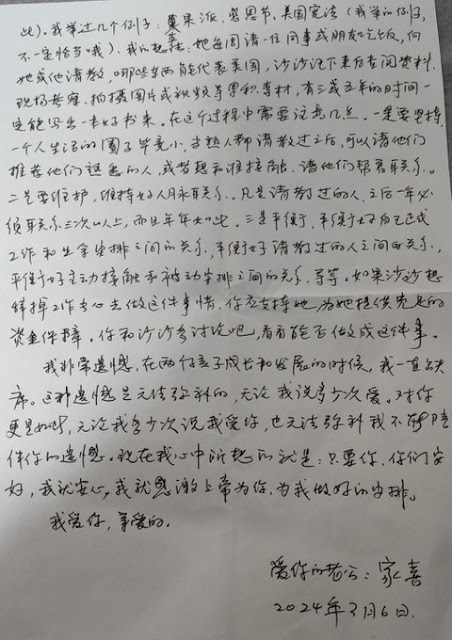 此）。我举过几个例子：苹果派、感恩节、美国宪法（我举的例子，
不一定恰当哦）。我的想法：她每周请一位同事或朋友吃饭，向
她或他请教，哪些东西能代表美国，沙沙记下来后查阅资料、
现场考察、拍摄图片或视频等累积素材，有三或五年的时间一
定能写出一本好书来。在这个过程中需要注意几点。一是要坚持，
一个人生活的圈子毕竟小，当熟人都请教过之后，可以请他们
推荐他们熟悉的人，或者想和谁接触，请他们帮着联系。
二是要维护，维持好人脉联系。凡是请教过的人，之后一年必
须联系三次以上，而且年年如此。三是平衡，平衡好自己已成
工作和业余安排之间的关系，平衡好请教过的人之间的关系，
平衡好主动接触和被动安排之间的关系，等等。如果沙沙想
辞掉工作专心去做这件事情，你应支持她，为她提供充足的
资金保障。你和沙沙多讨论吧，看看能否做成这件事。
我非常遗憾，在两个孩子成长和发展的时候，我一直缺
席。这种遗憾是无法弥补的，无论我说多少次爱。对你
更是如此，无论我多少次说我爱你，也无法弥补我不能陪
伴你的遗憾。现在我心中所想的就是：只要你、你们安
好，我就安心，我就感激上帝为你、为我做好的安排。
我爱你，亲爱的。
爱你的老公：家喜
2024年3月6日